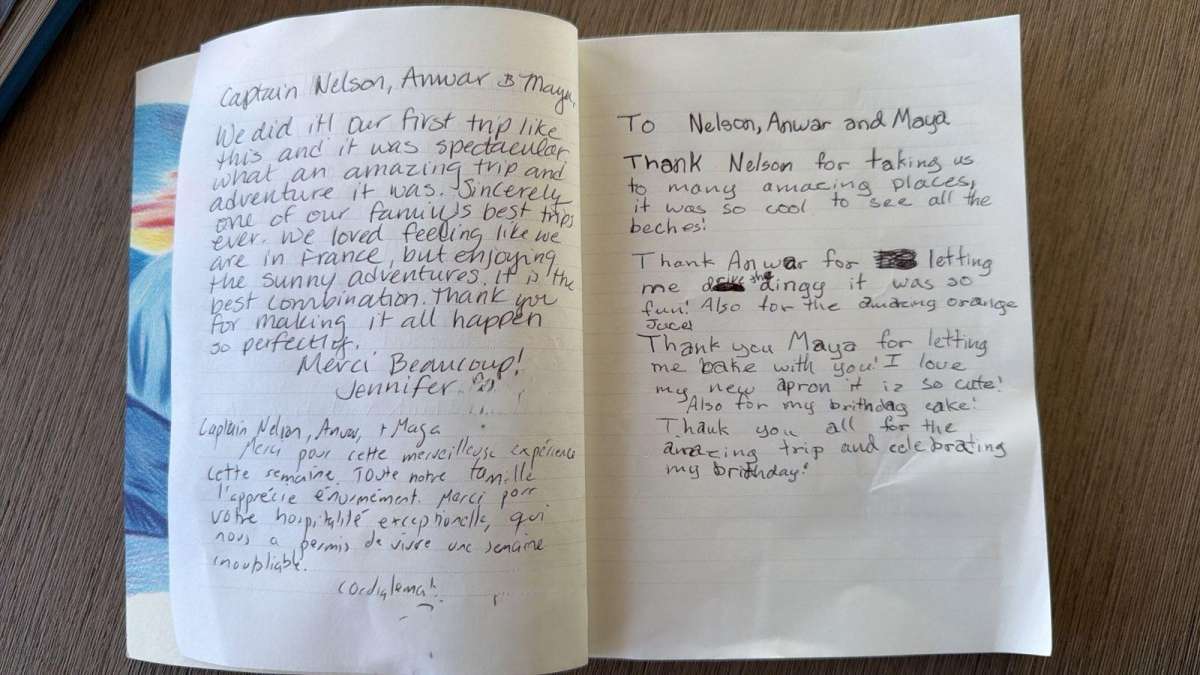 Captain Nelson, Anwar & Maya,
We did it! Our first trip like
this and it was spectacular
what an amazing trip and
adventure it was. Sincerely
one of our family's best trips
ever. We loved feeling like we
are in France, but enjoying
the sunny adventures. It is the
best combination. Thank you
for making it all happen
so perfectly.
Merci Beaucoup!
Jennifer
Captain Nelson, Anwar, + Maya
Merci pour cette merveilleuse expérience
cette semaine. Toute notre famille
l'apprécie énormément. Merci pour
votre hospitalité exceptionelle, qui
nous a permis de vivre une semaine
inoubliable.
Cordialement.
To Nelson, Anwar and Maya
Thank Nelson for taking us
to many amazing places,
it was so cool to see all the
beches!
Thank Anwar for letting
me the dingy it was so
fun! Also for the amazing orange
Juce!
Thank you Maya for letting
me bake with you! I love
my new apron it is so cute!
Also for my brithday cake!
Thank you all for the
amazing trip and celebrating
my brithday!